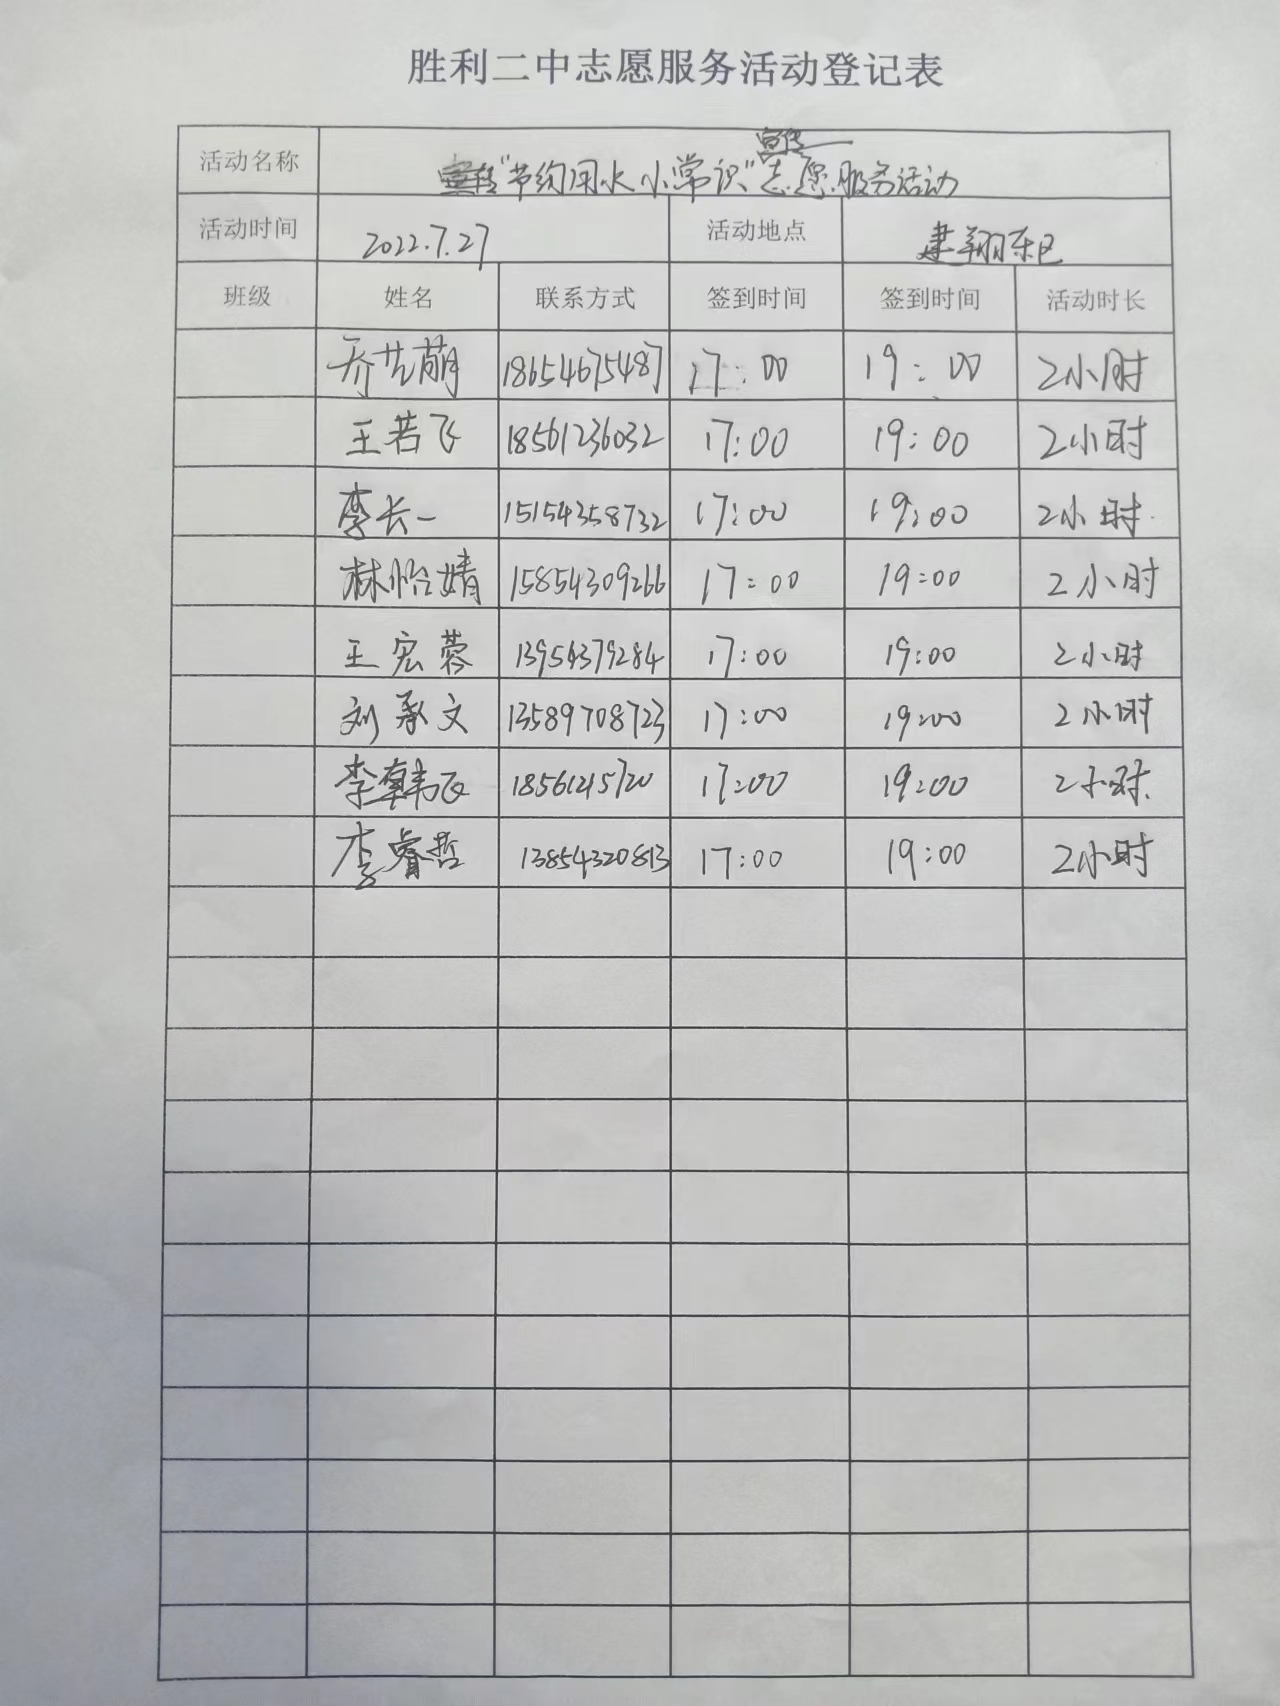 胜利二中志愿服务活动登记表
宣传
活动名称 "节约用水小常识"志愿服务活动
活动时间 2022.7.27 活动地点 建翔东区
班级 姓名 联系方式 签到时间 签到时间 活动时长
乔艺萌 18654675487 17:00 19:00 2小时
王若飞 18561236032 17:00 19:00 2小时
李长一 15154358732 17:00 19:00 2小时
林怡婧 15854309266 17:00 19:00 2小时
王宏蓉 13954379284 17:00 19:00 2小时
刘承文 13589708723 17:00 19:00 2小时
李韩飞 17:00 19:00 2小时
李睿哲 13854320813 17:00 19:00 2小时